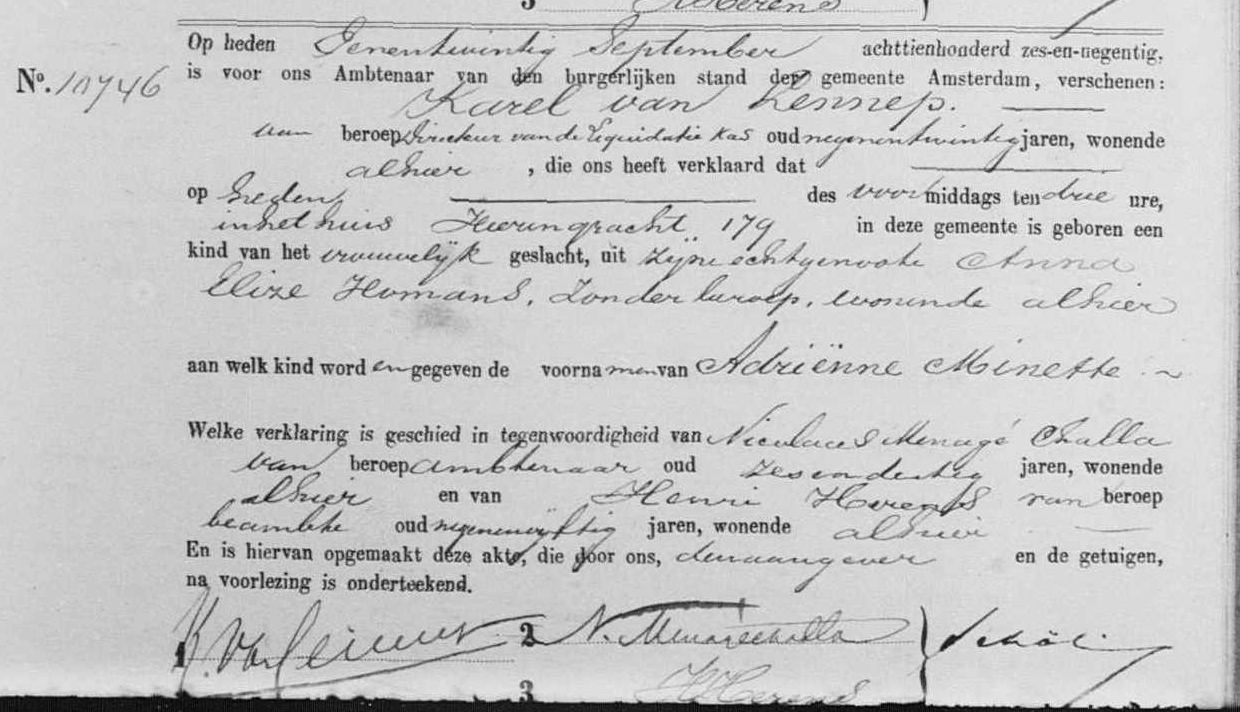 3 H Herens
Op heden Eenentwintig September achttienhonderd zes-en-negentig,
N°. 10746 is voor ons Ambtenaar van den burgerlijken stand der gemeente Amsterdam, verschenen:
Karel van Lennep.
van beroep Directeur van de Liquidatie Kas oud negenentwintig jaren, wonende
alhier, die ons heeft verklaard dat
op heden des voormiddags ten drie ure,
in het huis Heerengracht 179 in deze gemeente is geboren een
kind van het vrouwelijk geslacht, uit zijne echtgenoote Anna
Elize Homans, zonder beroep, wonende alhier
aan welk kind worden gegeven de voornamen van Adriënne Minette
Welke verklaring is geschied in tegenwoordigheid van Nicolaas Menagé Challa
van beroep ambtenaar oud zesendertig jaren, wonende
alhier en van Henri Herens van beroep
beambte oud negenenvijftig jaren, wonende alhier
En is hiervan opgemaakt deze akte, die door ons, den aangever en de getuigen,
na voorlezing is onderteekend.
1 K. Van Lennep 2 N. Menagé Challa
3 H Herens